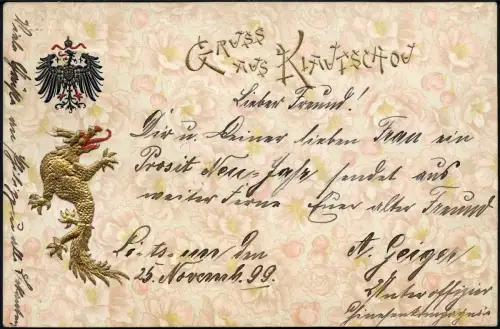 Gruss
aus Kiautschou
Lieber Freund!
Dir u. Deiner lieben Frau ein
Prosit Neu-Jahr sendet aus
weiter Ferne Euer alter Freund
A. Geiger
Unteroffizier
den
25. Novemb. 99.
Viele Grüße an u. alle